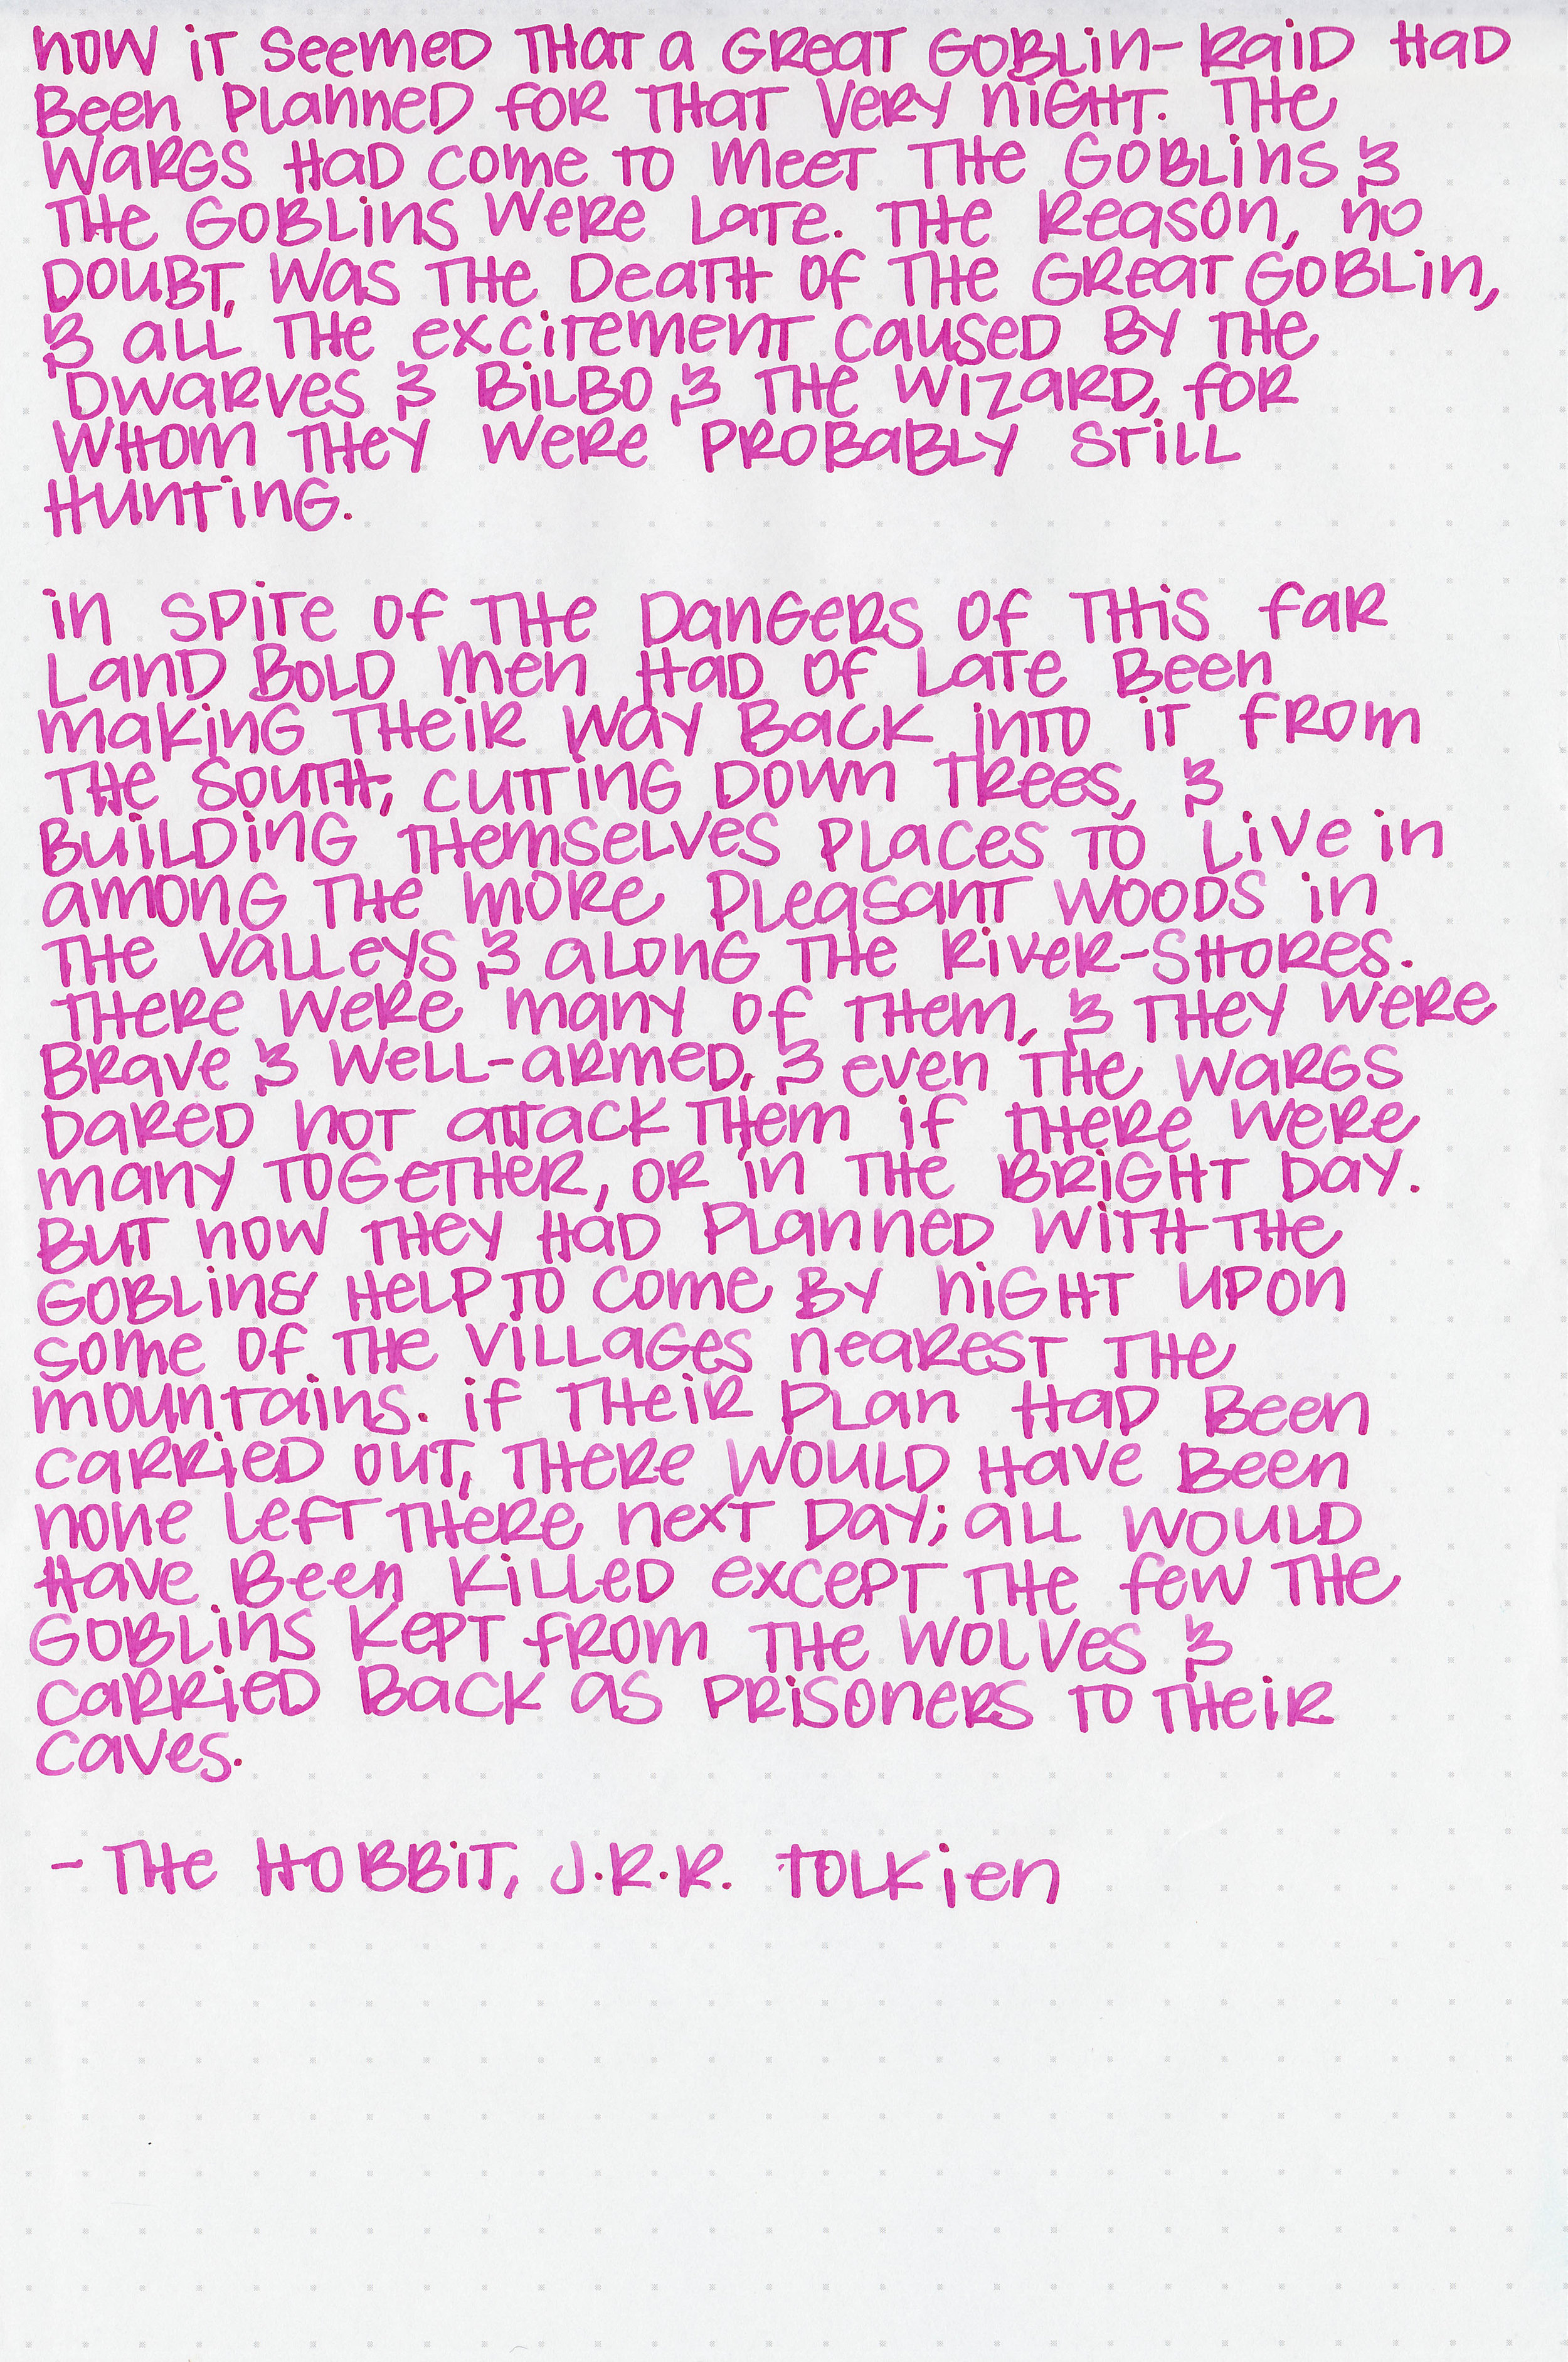 now it seemed that a great goblin-raid had
been planned for that very night. The
Wargs had come to meet the goblins &
the goblins were late. The reason, no
doubt, was the death of the Great Goblin,
& all the excitement caused by the
dwarves & Bilbo & the wizard, for
whom they were probably still
hunting.

in spite of the dangers of this far
land bold men had of late been
making their way back into it from
the South, cutting down trees, &
building themselves places to live in
among the more pleasant woods in
the valleys & along the river-shores.
There were many of them, & they were
brave & well-armed, & even the Wargs
dared not attack them if there were
many together, or in the bright day.
But now they had planned with the
goblins' help to come by night upon
some of the villages nearest the
mountains. if their plan had been
carried out, there would have been
none left there next day; all would
have been killed except the few the
goblins kept from the wolves &
carried back as prisoners to their
caves.

- The Hobbit, J.R.R. Tolkien